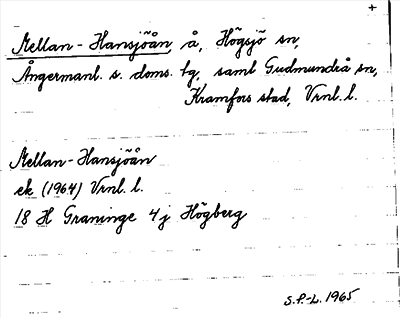 +
Mellan-Hansjöån, å, Högsjö sn,
Ångermanl. s. doms. tg, saml Gudmundrå sn,
Kramfors stad, Vrnl. l.
Mellan-Hansjöån
ek (1964) Vrnl. l.
18 H Graninge 4j Högberg
S.P.-L. 1965